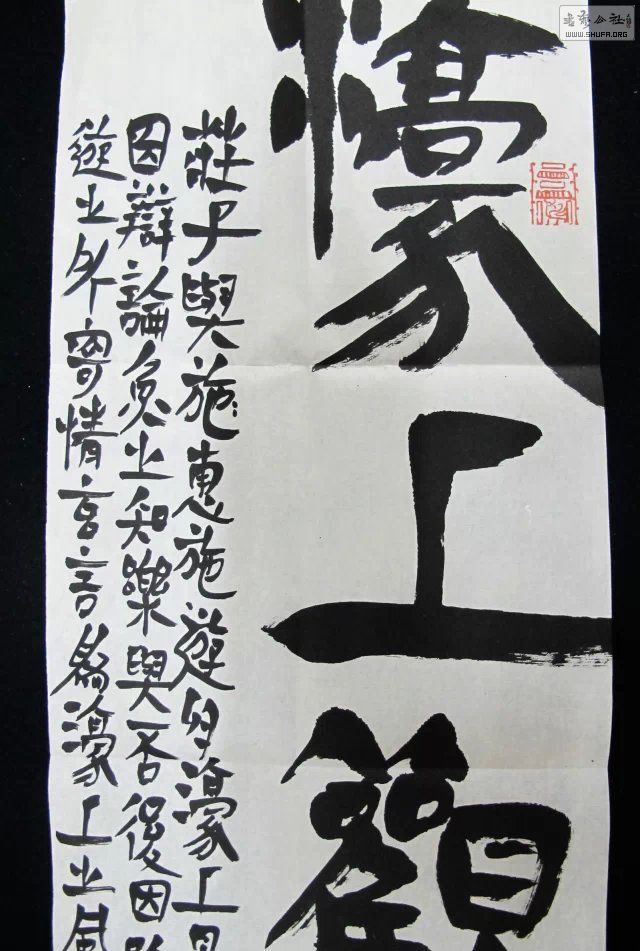 濠上觀
莊子與施惠施遊濠上見
因辯論魚之知樂與否後因
遊之外寄情玄言為濠上之風
书艺公社
WWW.SHUFA.ORG